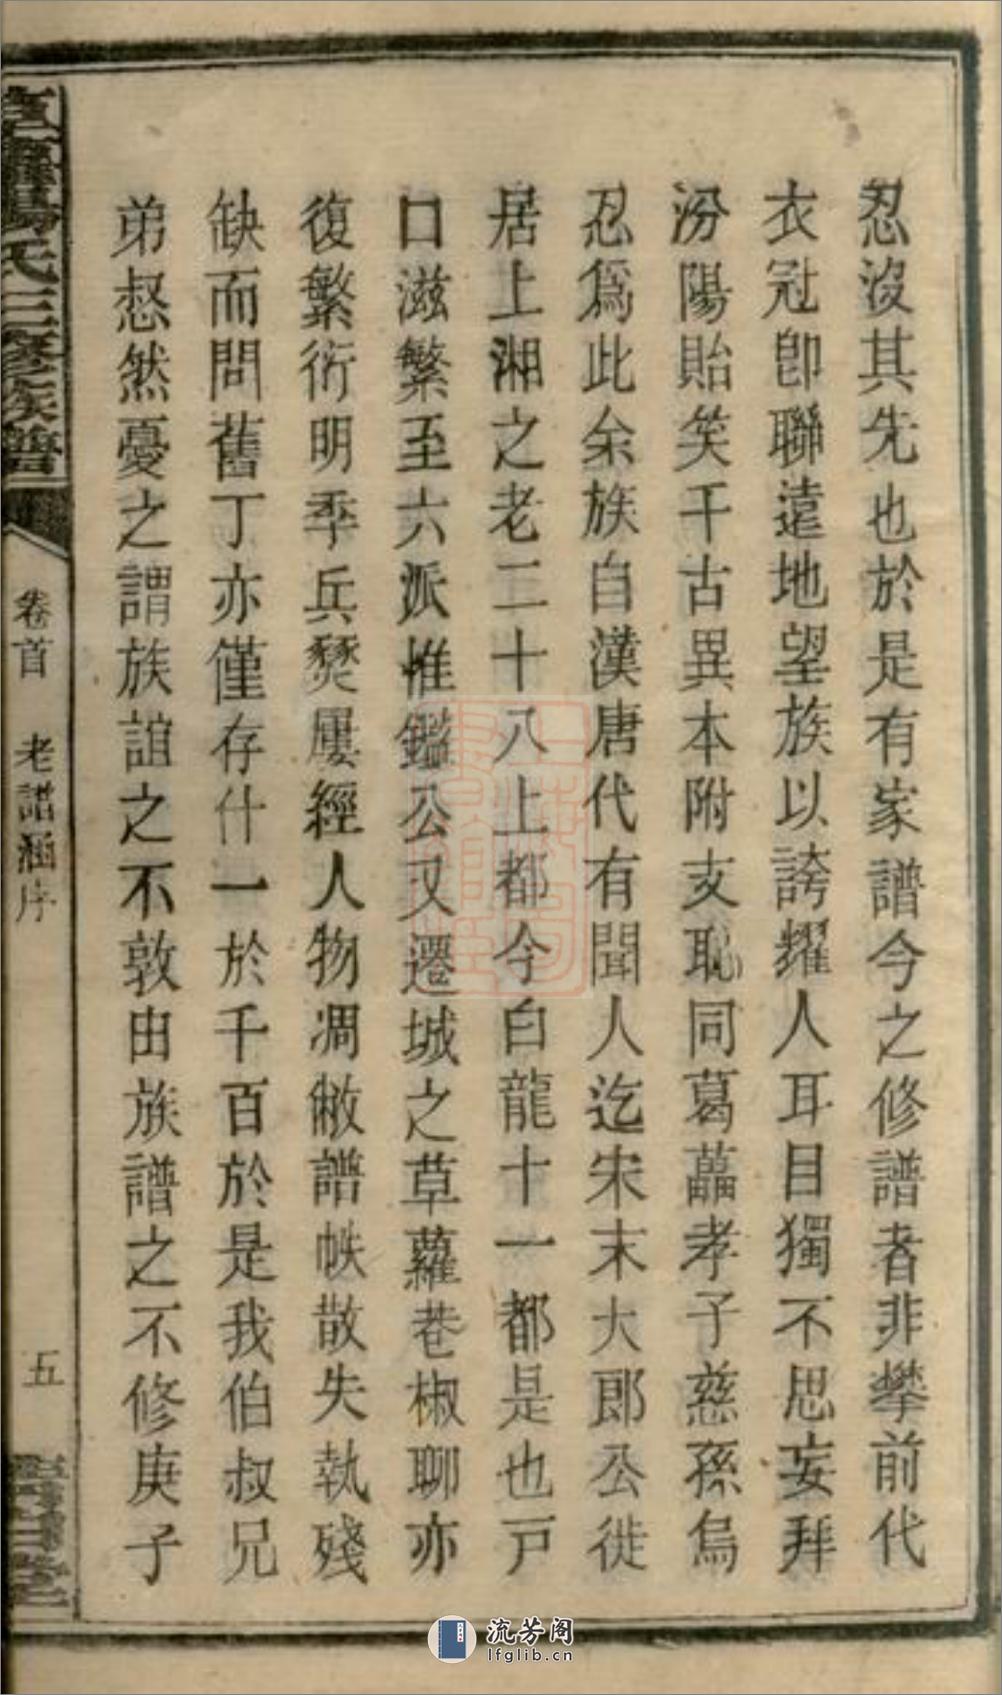 忍沒其先也於是有家譜今之修譜者非攀前代
衣冠卽聯遠地望族以誇耀人耳目獨不思妄拜
汾陽貽笑千古異本附支恥同葛藟孝子慈孫烏
忍爲此余族自漢唐代有聞人迄宋末大郎公徙
居上湘之老二十八上都今白龍十一都是也戸
口滋繁至六派惟鑑公又遷城之草蘿巷椒聊亦
復繁衍明季兵燹屢經人物凋敝譜帙散失執殘
缺而問舊丁亦僅存什一於千百於是我伯叔兄
弟惄然憂之謂族誼之不敦由族譜之不修庚子
氏三修族譜
卷首
老譜 序
五
流芳阁
lfglib.cn